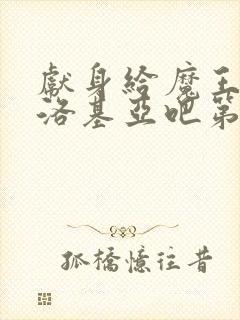 獻身給魔王
洛基亞吧第
孤橋憶往昔